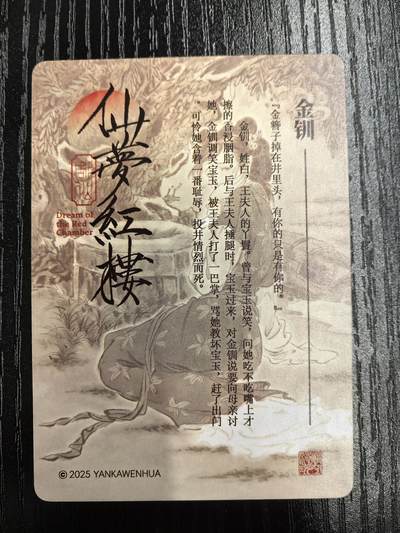 金钏
“金簪子掉在井里头，有你的只是有你的。”
金钏，姓白，王夫人的丫鬟。曾与宝玉说笑，问她吃不吃嘴上才
擦的香浸胭脂。后与王夫人捶腿时，宝玉过来，对金钏说要向母亲讨
她，金钏调笑宝玉，被王夫人打了一巴掌，骂她教坏宝玉，赶了出门
。可怜她含着一番耻辱，投井情烈而死。
仙夢紅樓
Dream of
the Red
Chamber
© 2025 YANKAWENHUA